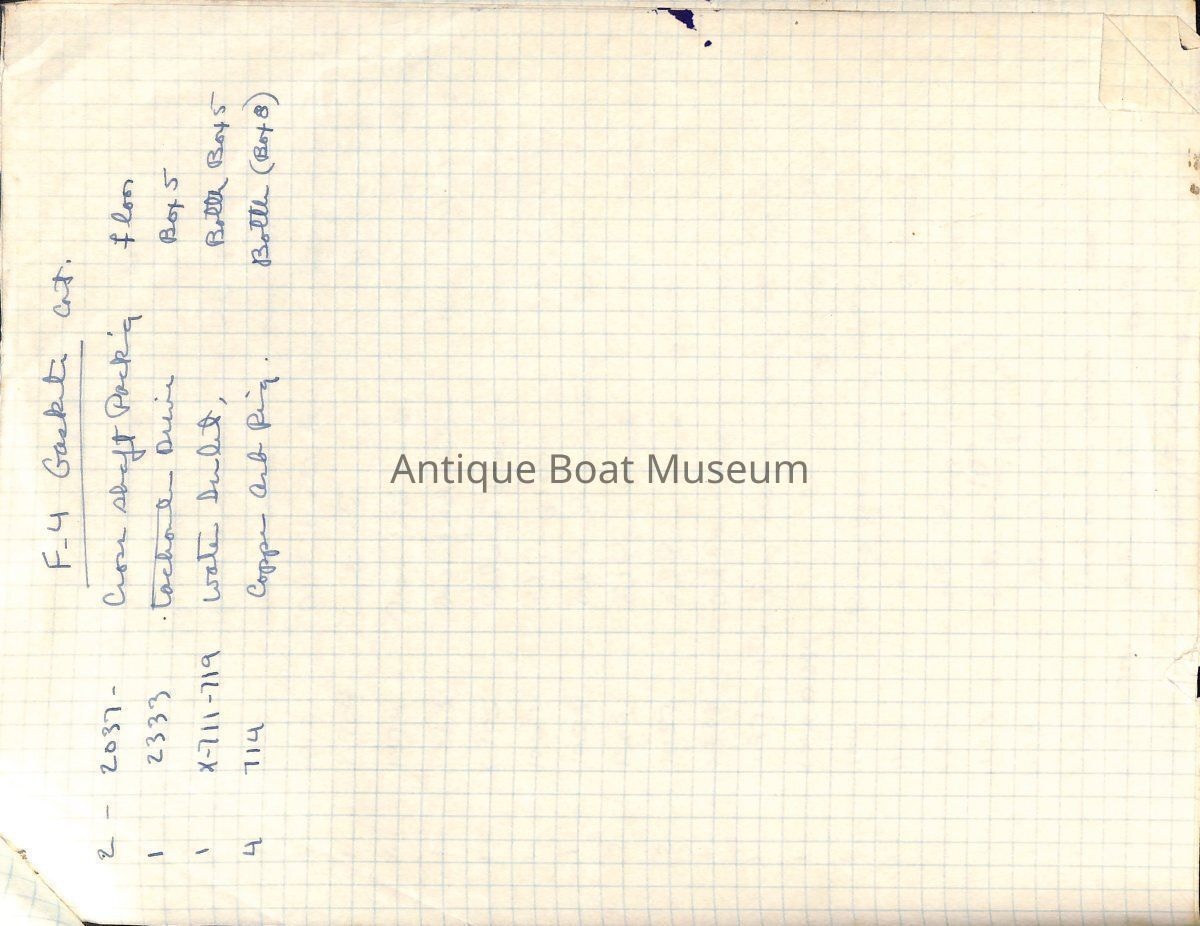 F-4 Gaskets Cont.
2 - 2037 - Cross shaft Pack'g floor
1 2333 Tachometer Drive Box 5
1 X-711-719 Water Bottle Box 5
4 714 Copper Asb Ring. Bottle (Box 8)
Antique Boat Museum